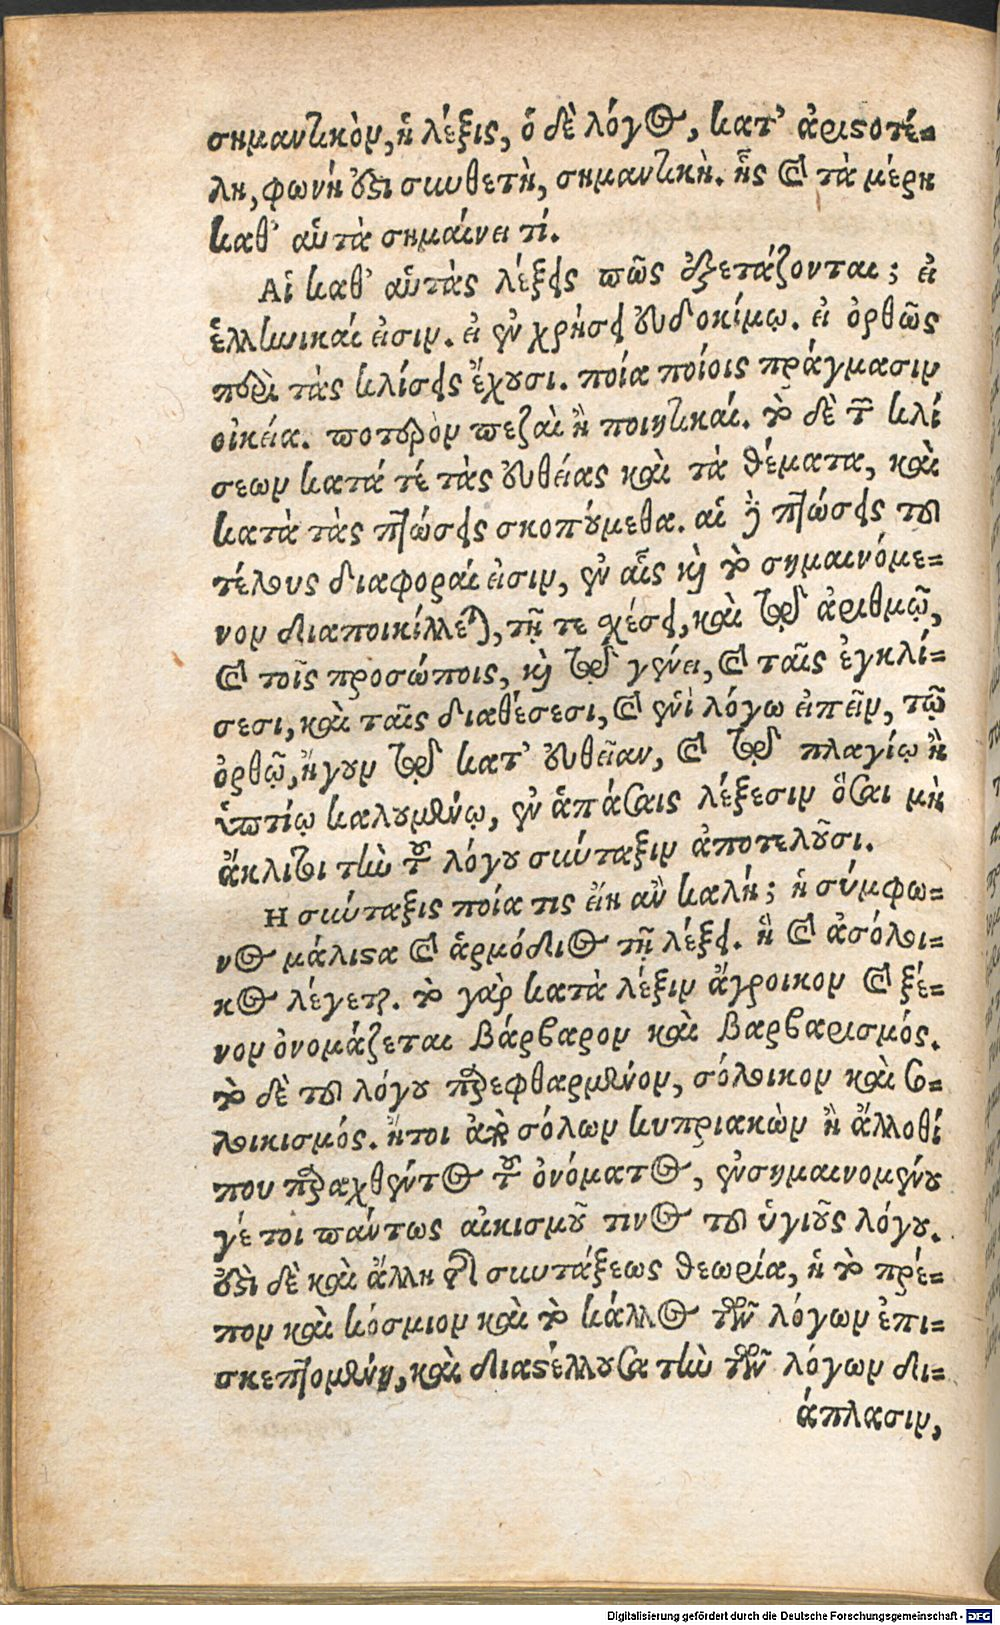 σημαντικὸν, ἡ λέξις, ὁ δὲ λόγος, κατ' ἀριστοτέ-
λη, φωνή ἐστι συνθετὴ, σημαντικὴ. ἧς καὶ τὰ μέρη
καθ' αὑτὰ σημαίνει τί.
Αἱ καθ' αὑτὰς λέξεις πῶς ἐξετάζονται; εἰ
ἑλληνικαί εἰσιν. εἰ ἐν χρήσει εὐδοκίμῳ. εἰ ὀρθῶς
περὶ τὰς κλίσεις ἔχουσι. ποία ποίοις πράγμασιν
οἰκεία. ποτερὸν πεζαὶ ἢ ποιητικαί. τὸ δὲ τῶν κλί
σεων κατά τέ τὰς εὐθείας καὶ τὰ θέματα, καὶ
κατὰ τὰς πτώσεις σκοπούμεθα. αἱ δὲ πτώσεις τοῦ
τέλους διαφοραί εἰσιν, ἐν αἷς καὶ τὸ σημαινόμε-
νον διαποικίλλεται, τῇ τε χέσει, καὶ τῷ ἀριθμῷ,
καὶ τοῖς προσώποις, καὶ τῷ γένει, καὶ ταῖς ἐγκλί-
σεσι, καὶ ταῖς διαθέσεσι, καὶ ἑνὶ λόγω εἰπεῖν, τῷ
ὀρθῷ, ἤγουν τῷ κατ' εὐθεῖαν, καὶ τῷ πλαγίῳ ἢ
ὑπτίῳ καλουμένῳ, ἐν ἁπάσαις λέξεσιν ὅσαι μὴ
ἄκλιτοι τὴν τοῦ λόγου σύνταξιν ἀποτελοῦσι.
Η σύνταξις ποία τις εἴη ἂν καλή; ἡ σύμφω-
νος μάλιστα καὶ ἁρμόδιος τῇ λέξει. ἢ καὶ ἀσόλοι-
κος λέγεται. τὸ γὰρ κατὰ λέξιν ἄγροικον καὶ ξέ-
νον ὀνομάζεται βάρβαρον καὶ βαρβαρισμός.
τὸ δὲ τοῦ λόγου παρεφθαρμένον, σόλοικον καὶ σο-
λοικισμός. ἤτοι ἀπὸ σόλων κυπριακὼν ἢ ἄλλοθί
που παραχθέντος τοῦ ὀνόματος, ἐνσημαινομένου
γέ τοι πάντως αἰκισμοῦ τινος τοῦ ὑγιοῦς λόγου.
ἐστὶ δὲ καὶ ἄλλη τῆς συντάξεως θεωρία, ἡ τὸ πρέ-
πον καὶ κόσμιον καὶ τὸ κάλλος τῶν λόγων ἐπι-
σκεπτομένη, καὶ διαστέλλουσα τὴν τῶν λόγων δι-
άπλασιν,
Digitalisierung gefördert durch die Deutsche Forschungsgemeinschaft - DFG